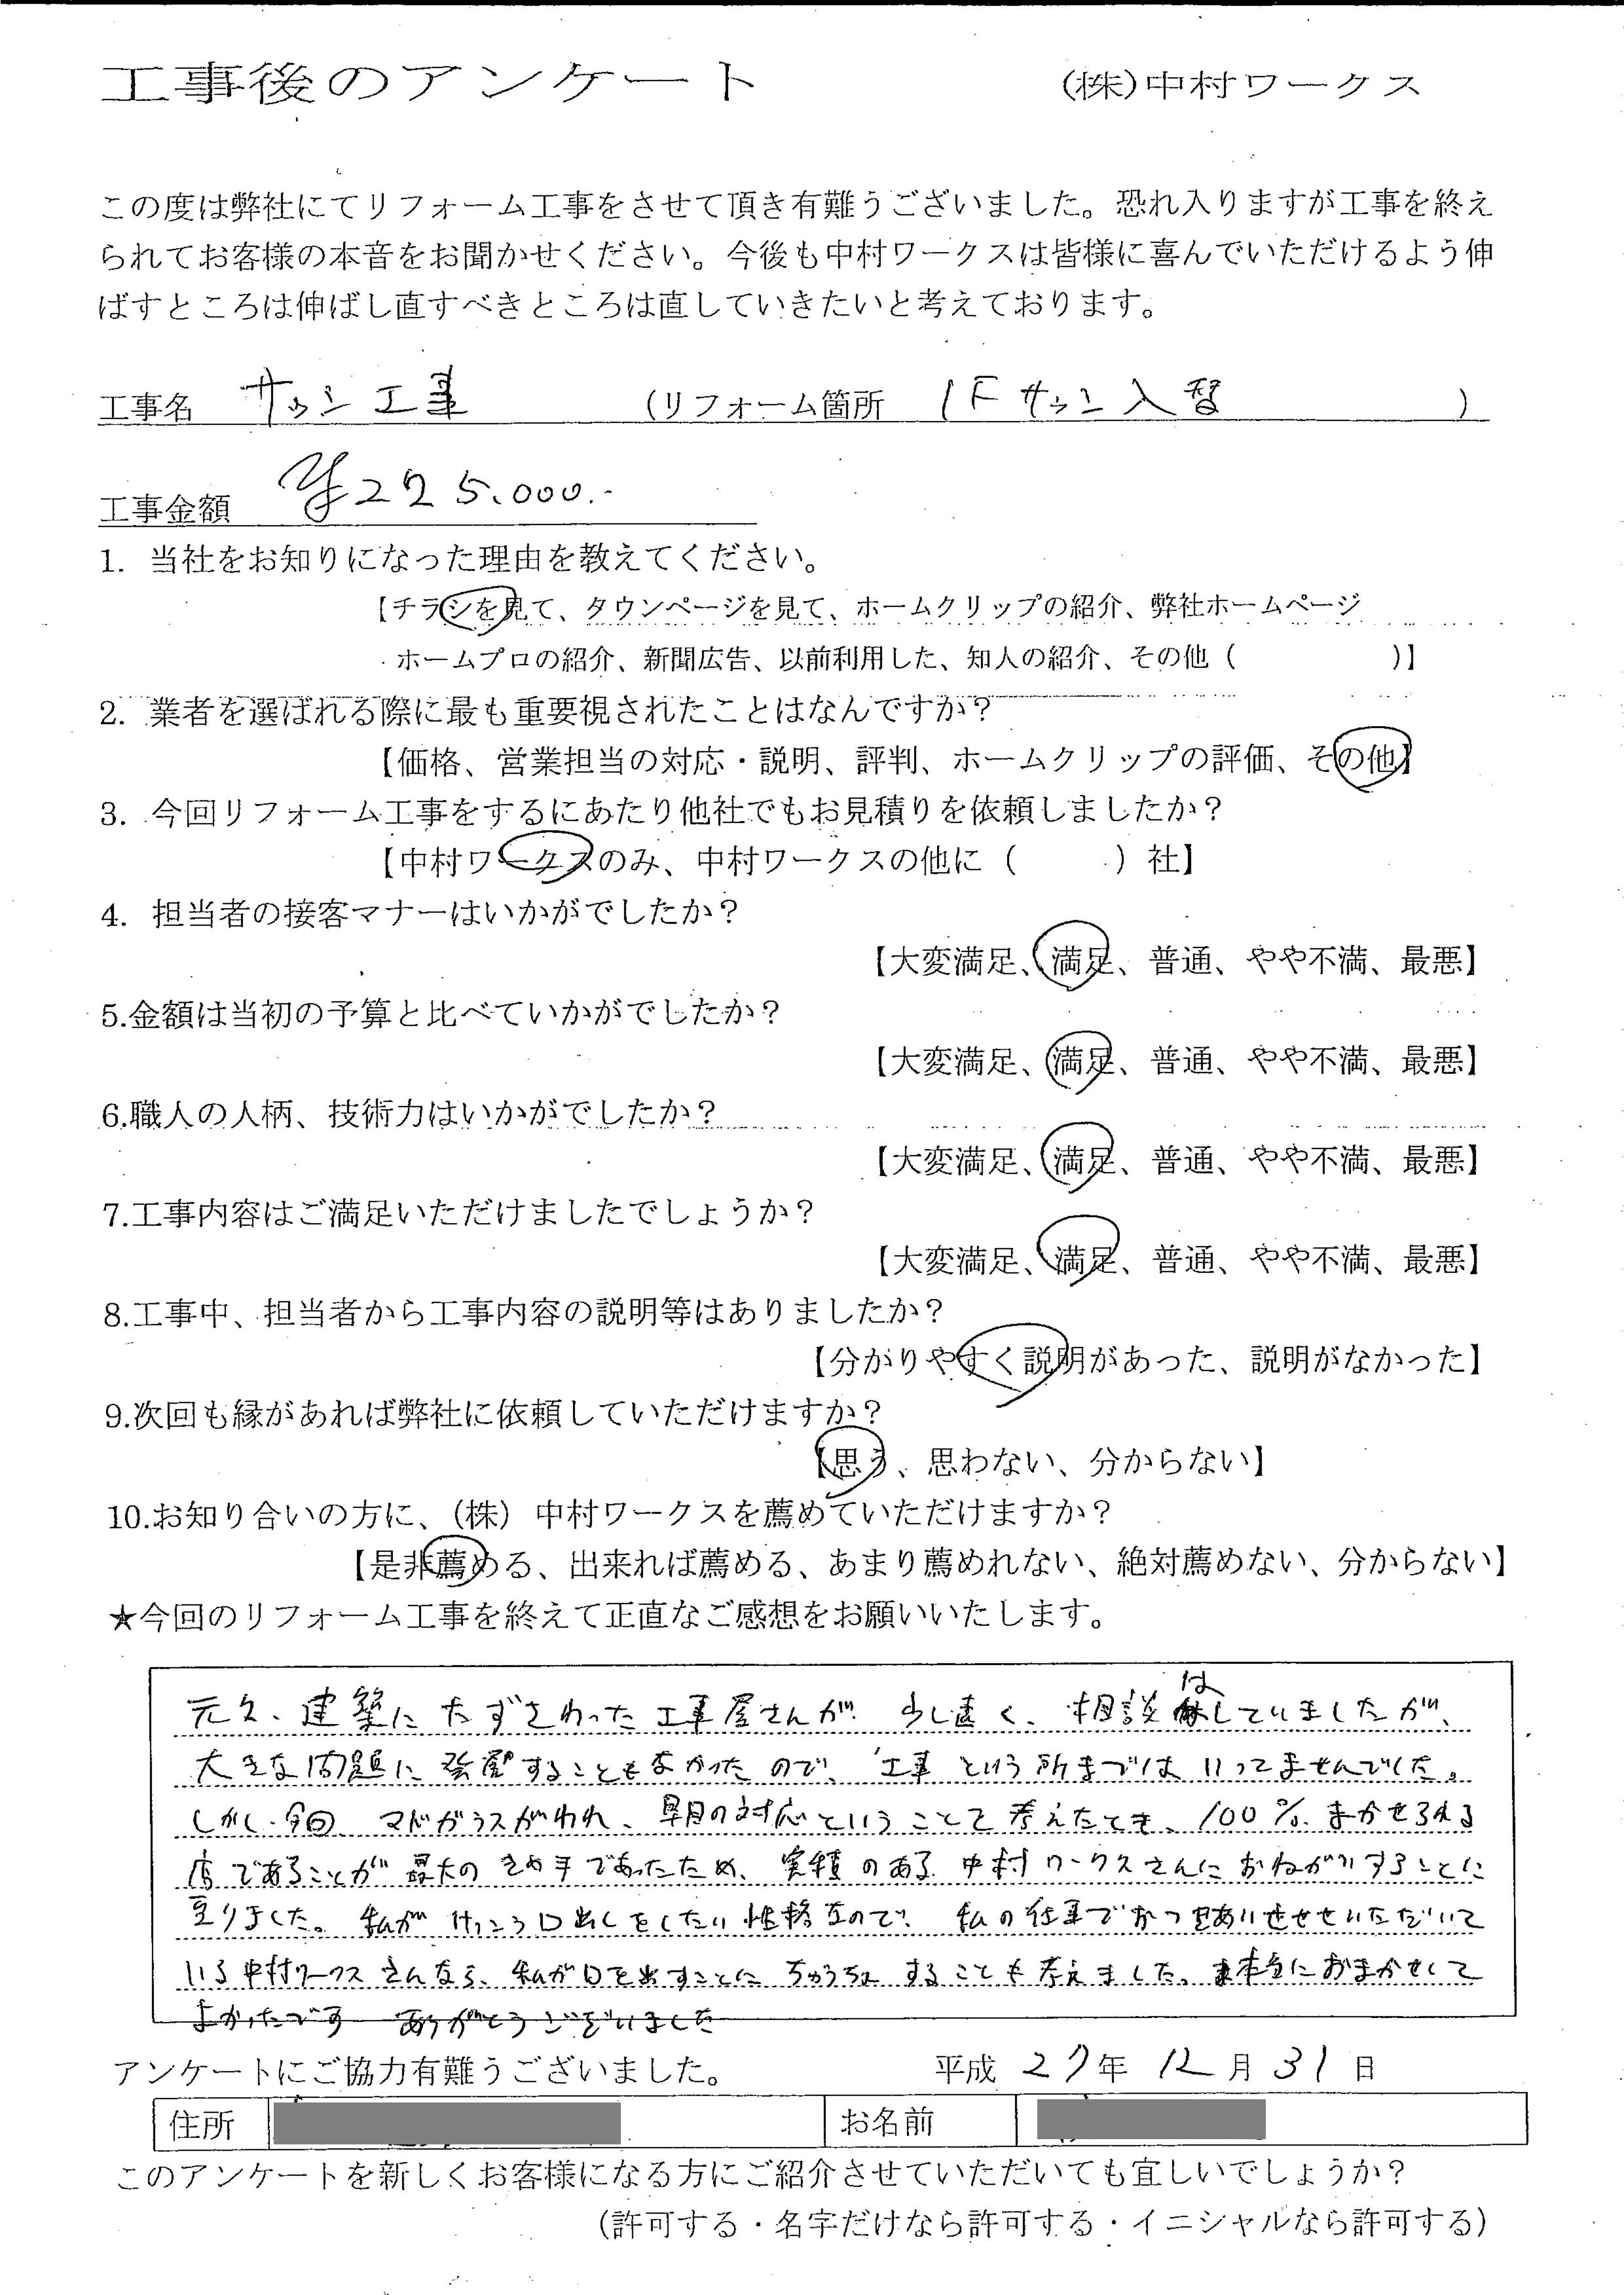 工事後のアンケート　(株)中村ワークス
この度は弊社にてリフォーム工事をさせて頂き有難うございました。恐れ入りますが工事を終え
られてお客様の本音をお聞かせください。今後も中村ワークスは皆様に喜んでいただけるよう伸
ばすところは伸ばし直すべきところは直していきたいと考えております。
工事名　サッシ工事　(リフォーム箇所　1Fサッシ入替　)
工事金額　¥225,000.-
1. 当社をお知りになった理由を教えてください。
【チラシを見て、タウンページを見て、ホームクリップの紹介、弊社ホームページ
ホームプロの紹介、新聞広告、以前利用した、知人の紹介、その他（　）】
2. 業者を選ばれる際に最も重要視されたことはなんですか？
【価格、営業担当の対応・説明、評判、ホームクリップの評価、その他】
3. 今回リフォーム工事をするにあたり他社でもお見積りを依頼しましたか？
【中村ワークスのみ、中村ワークスの他に（　）社】
4. 担当者の接客マナーはいかがでしたか？
【大変満足、満足、普通、やや不満、最悪】
5.金額は当初の予算と比べていかがでしたか？
【大変満足、満足、普通、やや不満、最悪】
6.職人の人柄、技術力はいかがでしたか？
【大変満足、満足、普通、やや不満、最悪】
7.工事内容はご満足いただけましたでしょうか？
【大変満足、満足、普通、やや不満、最悪】
8.工事中、担当者から工事内容の説明等はありましたか？
【分がりやすく説明があった、説明がなかった】
9.次回も縁があれば弊社に依頼していただけますか？
【思う、思わない、分からない】
10.お知り合いの方に、（株）中村ワークスを薦めていただけますか？
【是非薦める、出来れば薦める、あまり薦めれない、絶対薦めない、分からない】
★今回のリフォーム工事を終えて正直なご感想をお願いいたします。
元々、建築にたずさわった工事屋さんが 少し遠く、相談はしていましたが、
大きな問題に発展することもなかったので、工事 という所まではいってませんでした。
しかし、今回 マドガラスがわれ、早目の対応ということで考えたとき、100％ まかせられる
店であることが 最大の きめ手であったため、実績のある 中村ワークスさんに おねがいすることに
至りました。私が けっこう口出しをしたい性格なので、私の仕事でおつきあいさせていただいて
いる中村ワークスさんなら、私が口を出すことに ちゅうちょ することも考えました。本当におまかせして
よかったです ありがとうございました
アンケートにご協力有難うございました。　平成 27年 12月 31日
住所　お名前
このアンケートを新しくお客様になる方にご紹介させていただいても宜しいでしょうか？
（許可する・名字だけなら許可する・イニシャルなら許可する）